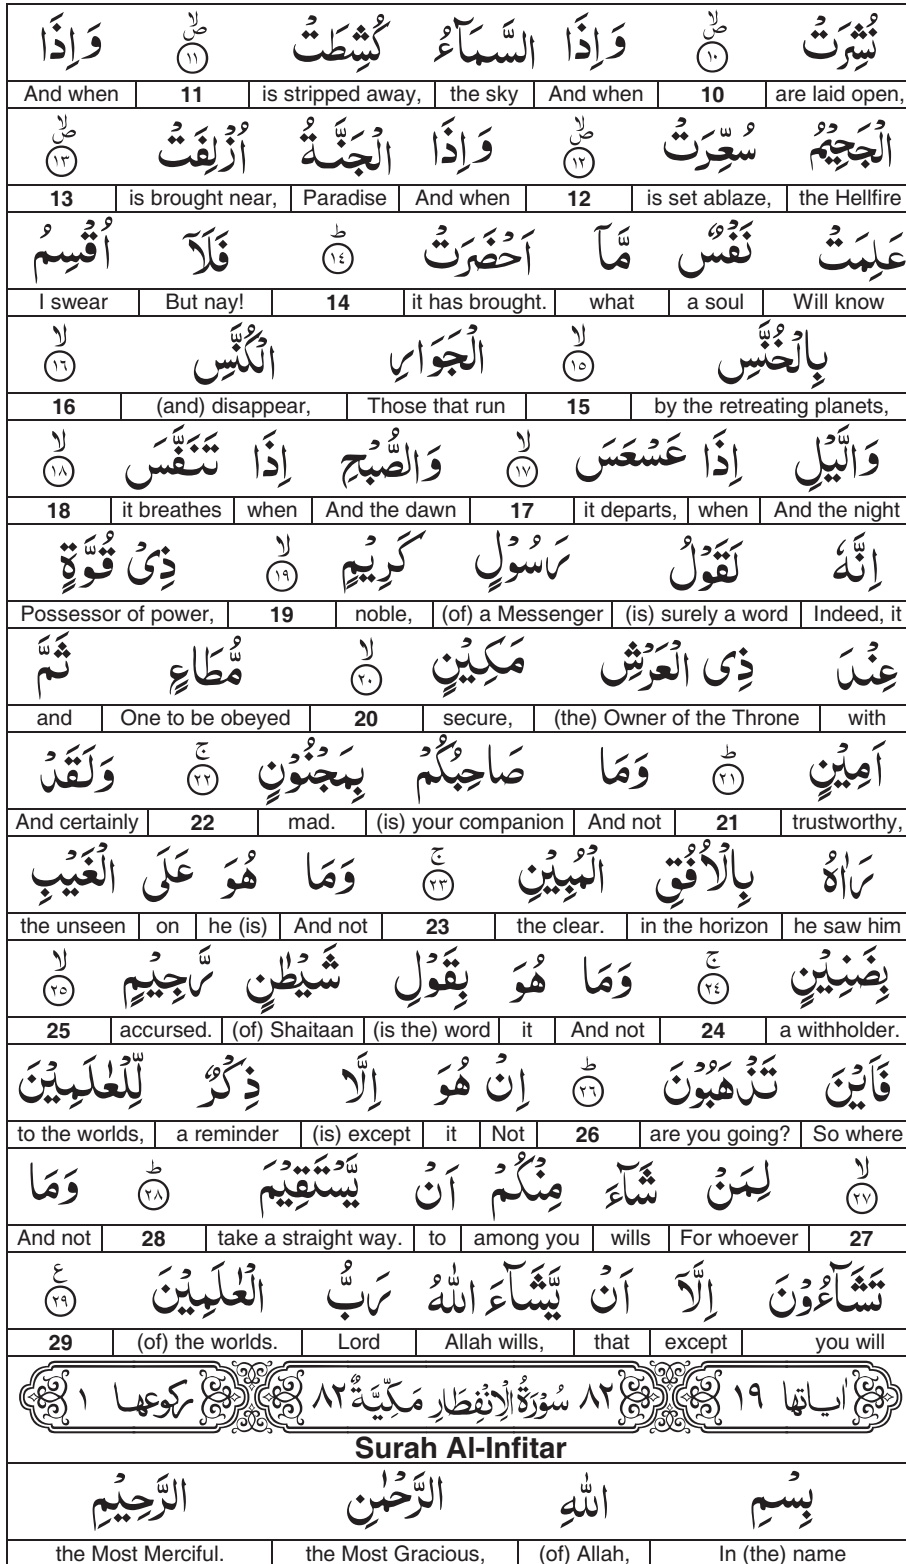 نُشِرَتْ ۪ۙ‏﴿۱۰﴾ وَاِذَا السَّمَآءُ كُشِطَتْ ۪ۙ‏﴿۱۱﴾ وَاِذَا
are laid open, 10 And when the sky is stripped away, 11 And when
الْجَحِيْمُ سُعِّرَتْ ۪ۙ‏﴿۱۲﴾ وَاِذَا الْجَنَّةُ اُزْلِفَتْ ۪ۙ‏﴿۱۳﴾
the Hellfire is set ablaze, 12 And when Paradise is brought near, 13
عَلِمَتْ نَفْسٌ مَّاۤ اَحْضَرَتْ ؕ‏﴿۱۴﴾ فَلَاۤ اُقْسِمُ
Will know a soul what it has brought. 14 But nay! I swear
بِالْخُنَّسِ ۙ‏﴿۱۵﴾ الْجَوَارِ الْكُنَّسِ ۙ‏﴿۱۶﴾
by the retreating planets, 15 Those that run (and) disappear, 16
وَالَّيْلِ اِذَا عَسْعَسَ ۙ‏﴿۱۷﴾ وَالصُّبْحِ اِذَا تَنَفَّسَ ۙ‏﴿۱۸﴾
And the night when it departs, 17 And the dawn when it breathes 18
اِنَّهٗ لَقَوْلُ رَسُوْلٍ كَرِيْمٍ ۙ‏﴿۱۹﴾ ذِىْ قُوَّةٍ
Indeed, it (is) surely a word (of) a Messenger noble, 19 Possessor of power,
عِنْدَ ذِى الْعَرْشِ مَكِيْنٍ ۙ‏﴿۲۰﴾ مُّطَاعٍ ثَمَّ
with (the) Owner of the Throne secure, 20 One to be obeyed and
اَمِيْنٍ ؕ‏﴿۲۱﴾ وَمَا صَاحِبُكُمْ بِمَجْنُوْنٍ ۚ‏﴿۲۲﴾ وَلَقَدْ
trustworthy, 21 And not (is) your companion mad. 22 And certainly
رَاٰهُ بِالْاُفُقِ الْمُبِيْنِ ۚ‏﴿۲۳﴾ وَمَا هُوَ عَلَى الْغَيْبِ
he saw him in the horizon the clear. 23 And not he (is) on the unseen
بِضَنِيْنٍ ۚ‏﴿۲۴﴾ وَمَا هُوَ بِقَوْلِ شَيْطٰنٍ رَّجِيْمٍ ۙ‏﴿۲۵﴾
a withholder. 24 And not it (is the) word (of) Shaitaan accursed. 25
فَاَيْنَ تَذْهَبُوْنَ ؕ‏﴿۲۶﴾ اِنْ هُوَ اِلَّا ذِكْرٌ لِّلْعٰلَمِيْنَ
So where are you going? 26 Not it (is) except a reminder to the worlds,
ۙ‏﴿۲۷﴾ لِمَنْ شَآءَ مِنْكُمْ اَنْ يَّسْتَقِيْمَ ؕ‏﴿۲۸﴾ وَمَا
27 For whoever wills among you to take a straight way. 28 And not
تَشَآءُوْنَ اِلَّاۤ اَنْ يَّشَآءَ اللّٰهُ رَبُّ الْعٰلَمِيْنَ ع‏﴿۲۹﴾
you will except that Allah wills, Lord (of) the worlds. 29
اٰيَاتُهَا ۱۹ ۸۲ سُوْرَةُ الْاِنْفِطَارِ مَكِّيَّةٌ ۸۲ رُكُوْعُهَا ۱
Surah Al-Infitar
بِسْمِ اللّٰهِ الرَّحْمٰنِ الرَّحِيْمِ
In (the) name (of) Allah, the Most Gracious, the Most Merciful.